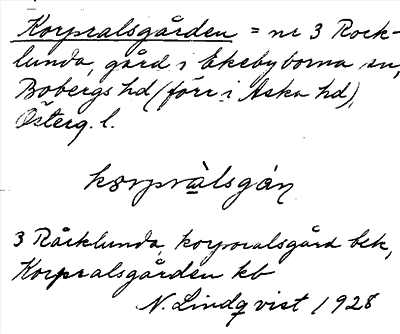 Korpralsgården = nr 3 Rock-
lunda, gård i Ekebyborna sn,
Bobergs hd (förr i Aska hd),
Österg. l.
korpràlsgán
3 Råcklunda, korporalsgård bek,
Korpralsgården kb
N. Lindqvist 1928